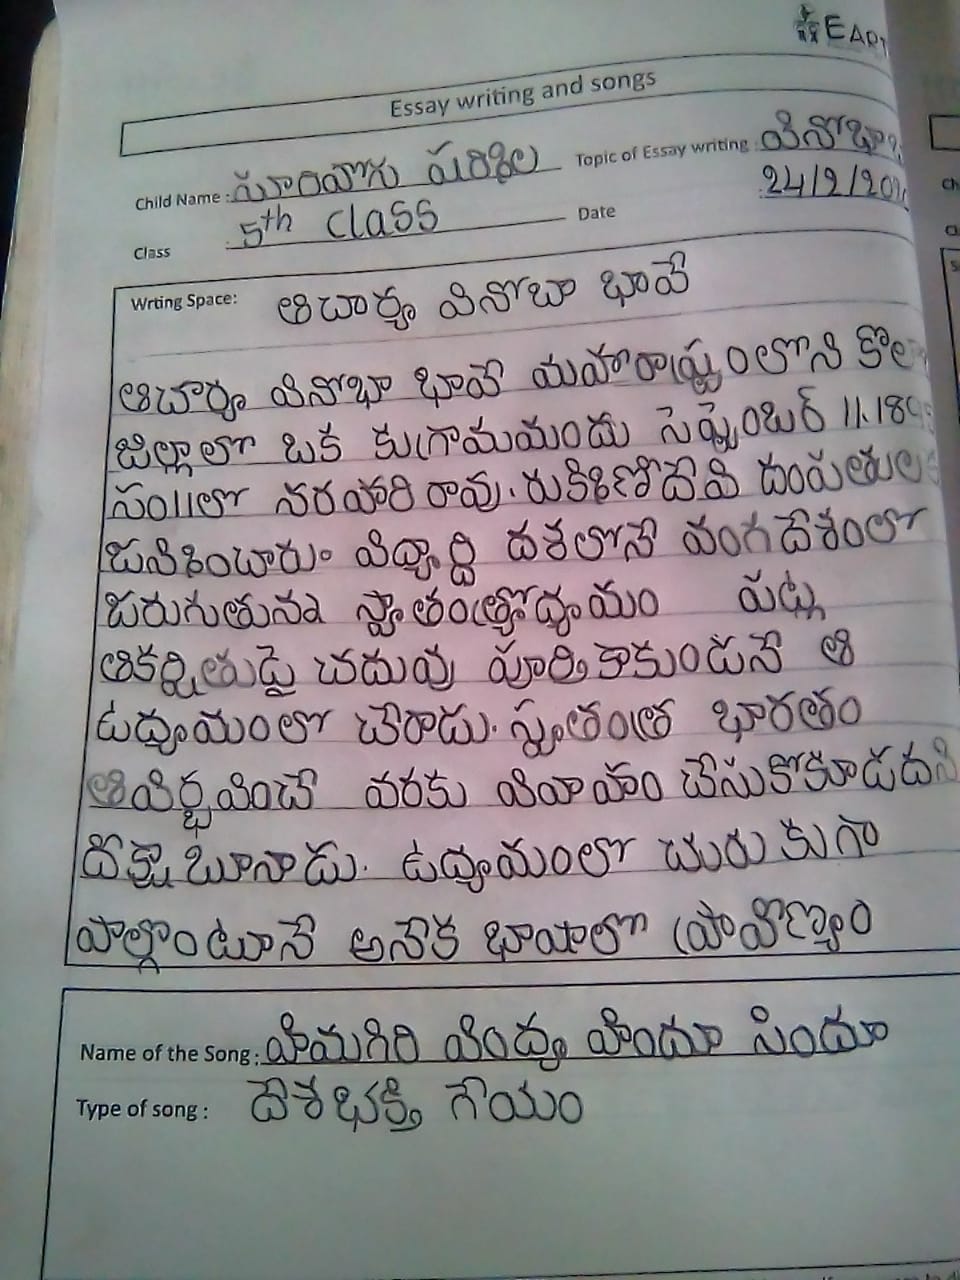 EART
Essay writing and songs
Child Name :
Topic of Essay writing : వినోభా
Class 5th Class
Date 24/2/20
Wrting Space: ఆచార్య వినోబా భావే
ఆచార్య వినోభా భావే మహారాష్ట్రంలోని కొల
జిల్లాలో ఒక కుగ్రామమందు సెప్టెంబర్ 11.189
సం॥లో నరహరి రావు. రుక్మిణీదేవి దంపతుల
జనిళించారు. విద్యార్ది దశలోనే వంగదేశంలో
జరుగుతున్న స్వాతంత్ర్యోద్యమం పట్ల
ఆకర్షితుడై చదువు పూర్తికాకుండనే ఆ
ఉద్యమంలో చేరాడు. స్వతంత్ర భారతం
ఆవిర్భవించే వరకు వివాహం చేసుకోకూడదని
దీక్ష బూనాడు. ఉద్యమంలో చురుకుగా
పాల్గొంటూనే అనేక భాషలలో ప్రావీణ్యం
Name of the Song : హిమగిరి వింధ్య హిందూ సిందూ
Type of song : దేశభక్తి గేయం